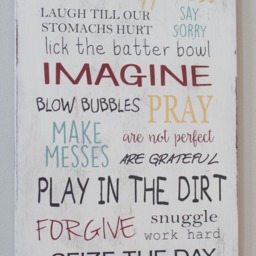 LAUGH TILL OUR
STOMACHS HURT
SAY
SORRY
lick the batter bowl
IMAGINE
BLOW BUBBLES
PRAY
MAKE
MESSES
are not perfect
ARE GRATEFUL
PLAY IN THE DIRT
FORGIVE
snuggle
work hard
SEIZE THE DAY